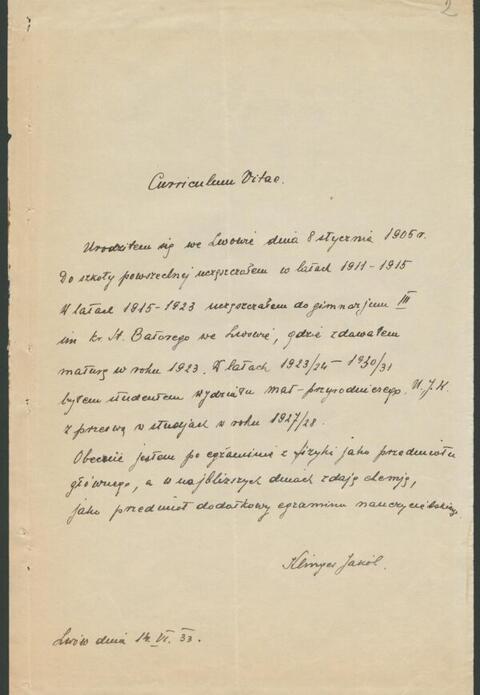 2
Curriculum Vitae.
Urodziłem się we Lwowie dnia 8 stycznia 1905 r.
Do szkoły powszechnej uczęszczałem w latach 1911-1915
W latach 1915-1923 uczęszczałem do gimnazjum III
im kr. St. Batorego we Lwowie, gdzie zdawałem
maturę w roku 1923. W latach 1923/24 - 1930/31
byłem studentem wydziału mat-przyrodniczego. U.J.K.
z przerwą w studjach w roku 1927/28.
Obecnie jestem po egzaminie z fizyki jako przedmiotu
głównego, a w najbliższych dniach zdaję chemję,
jako przedmiot dodatkowy egzaminu nauczycielskiego
Jakób.
Lwów dnia 14. VI. 33.